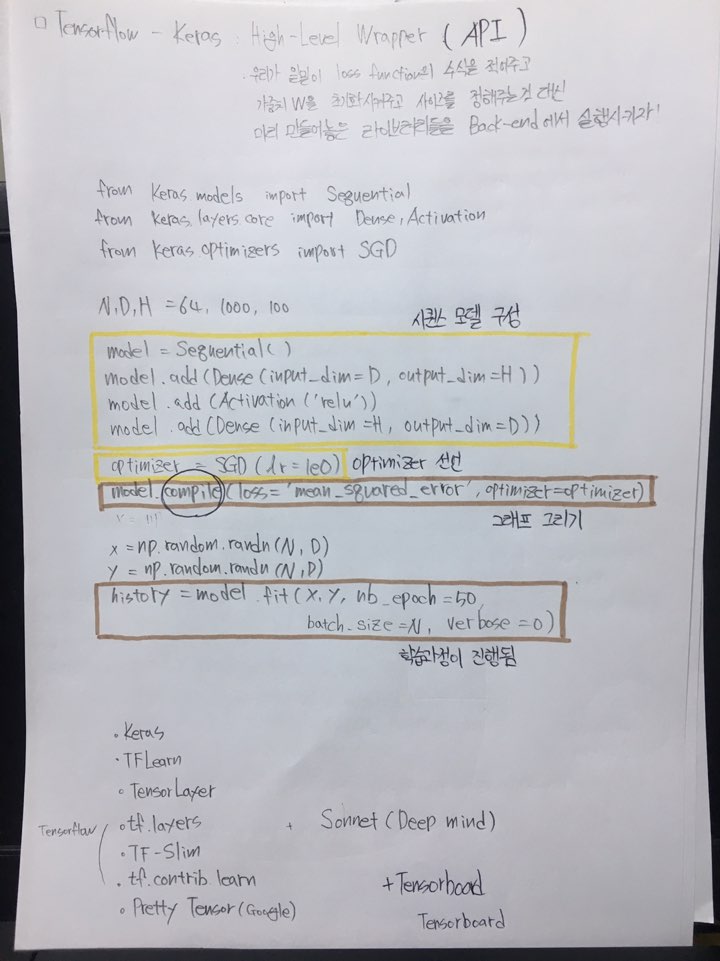 □ Tensorflow - Keras : High-Level Wrapper ( API )
· 우리가 일일이 loss function의 수식을 적어주고
가중치 W을 초기화시켜주고 사이즈를 정해주는 것 대신
미리 만들어놓은 라이브러리들을 Back-end에서 실행시키자!
from Keras.models import Sequential
from Keras.layers.core import Dense, Activation
from Keras.optimizers import SGD
N, D, H = 64, 1000, 100
시퀀스 모델 구성
model = Sequential( )
model.add (Dense (input_dim = D, output_dim = H ))
model.add (Activation ('relu'))
model.add (Dense (input_dim = H, output_dim = D))
optimizer = SGD (lr = 1e0) optimizer 선언
model.compile (loss = 'mean_squared_error', optimizer=optimizer)
그래프 그리기
x = np.random.randn (N, D)
Y = np.random.randn (N, D)
history = model.fit ( X, Y, nb_epoch = 50,
batch_size = N, verbose = 0 )
학습과정이 진행됨
· Keras
· TFLearn
· TensorLayer
Tensorflow · tf.layers + Sonnet (Deep mind)
· TF-Slim
· tf.contrib.learn +Tensorboad
· Pretty Tensor (Google) Tensorboard